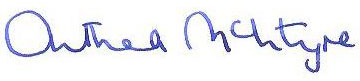 Anthea McIntyre